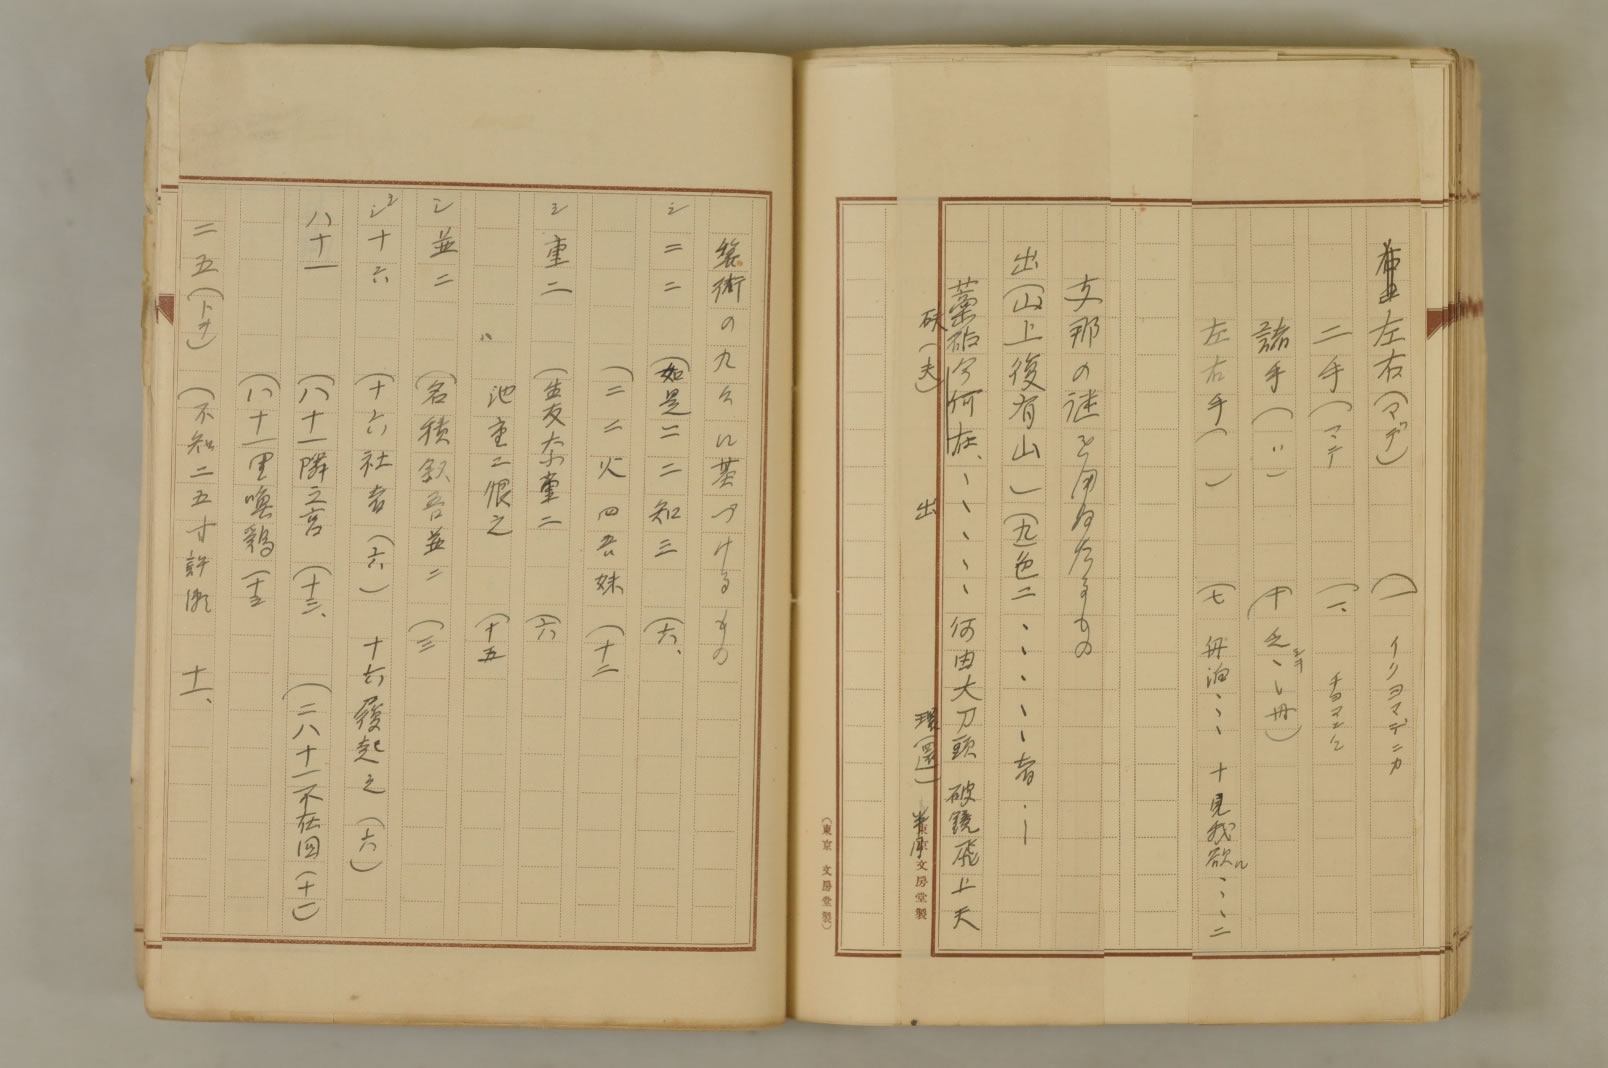 左右(マデ) (一 イリヨマデニカ
二手(マデ (一、
諸手(〃) (十
左右手( ) (七 舟泊、、、十見我欲ル、、、二
支那の謎を用ゐたるもの
出(山上復有山) (九色二、、、、、者、、
藁砧今何在、、、、、何由大刀頭 破鏡飛上天
砆(夫) 出 環(還) 半月
(東京 文房堂製)
算術の九々に基づけるもの
シ 二二 (如是二二知三 (六、
(二二火四吾妹 (十二
シ 重二 (生友奈重二 (六
〃 池重二恨之 (十五
シ 並二 (名積叙吾並二 (三
十六 (十六社者(六) 十六履起之(六)
八十一 (八十一隣之宮(十三、 (二八十一不在国(十一)
(八十一里喚鶏(十三
二五(トヲ) (不知二五寸許瀬 十一、